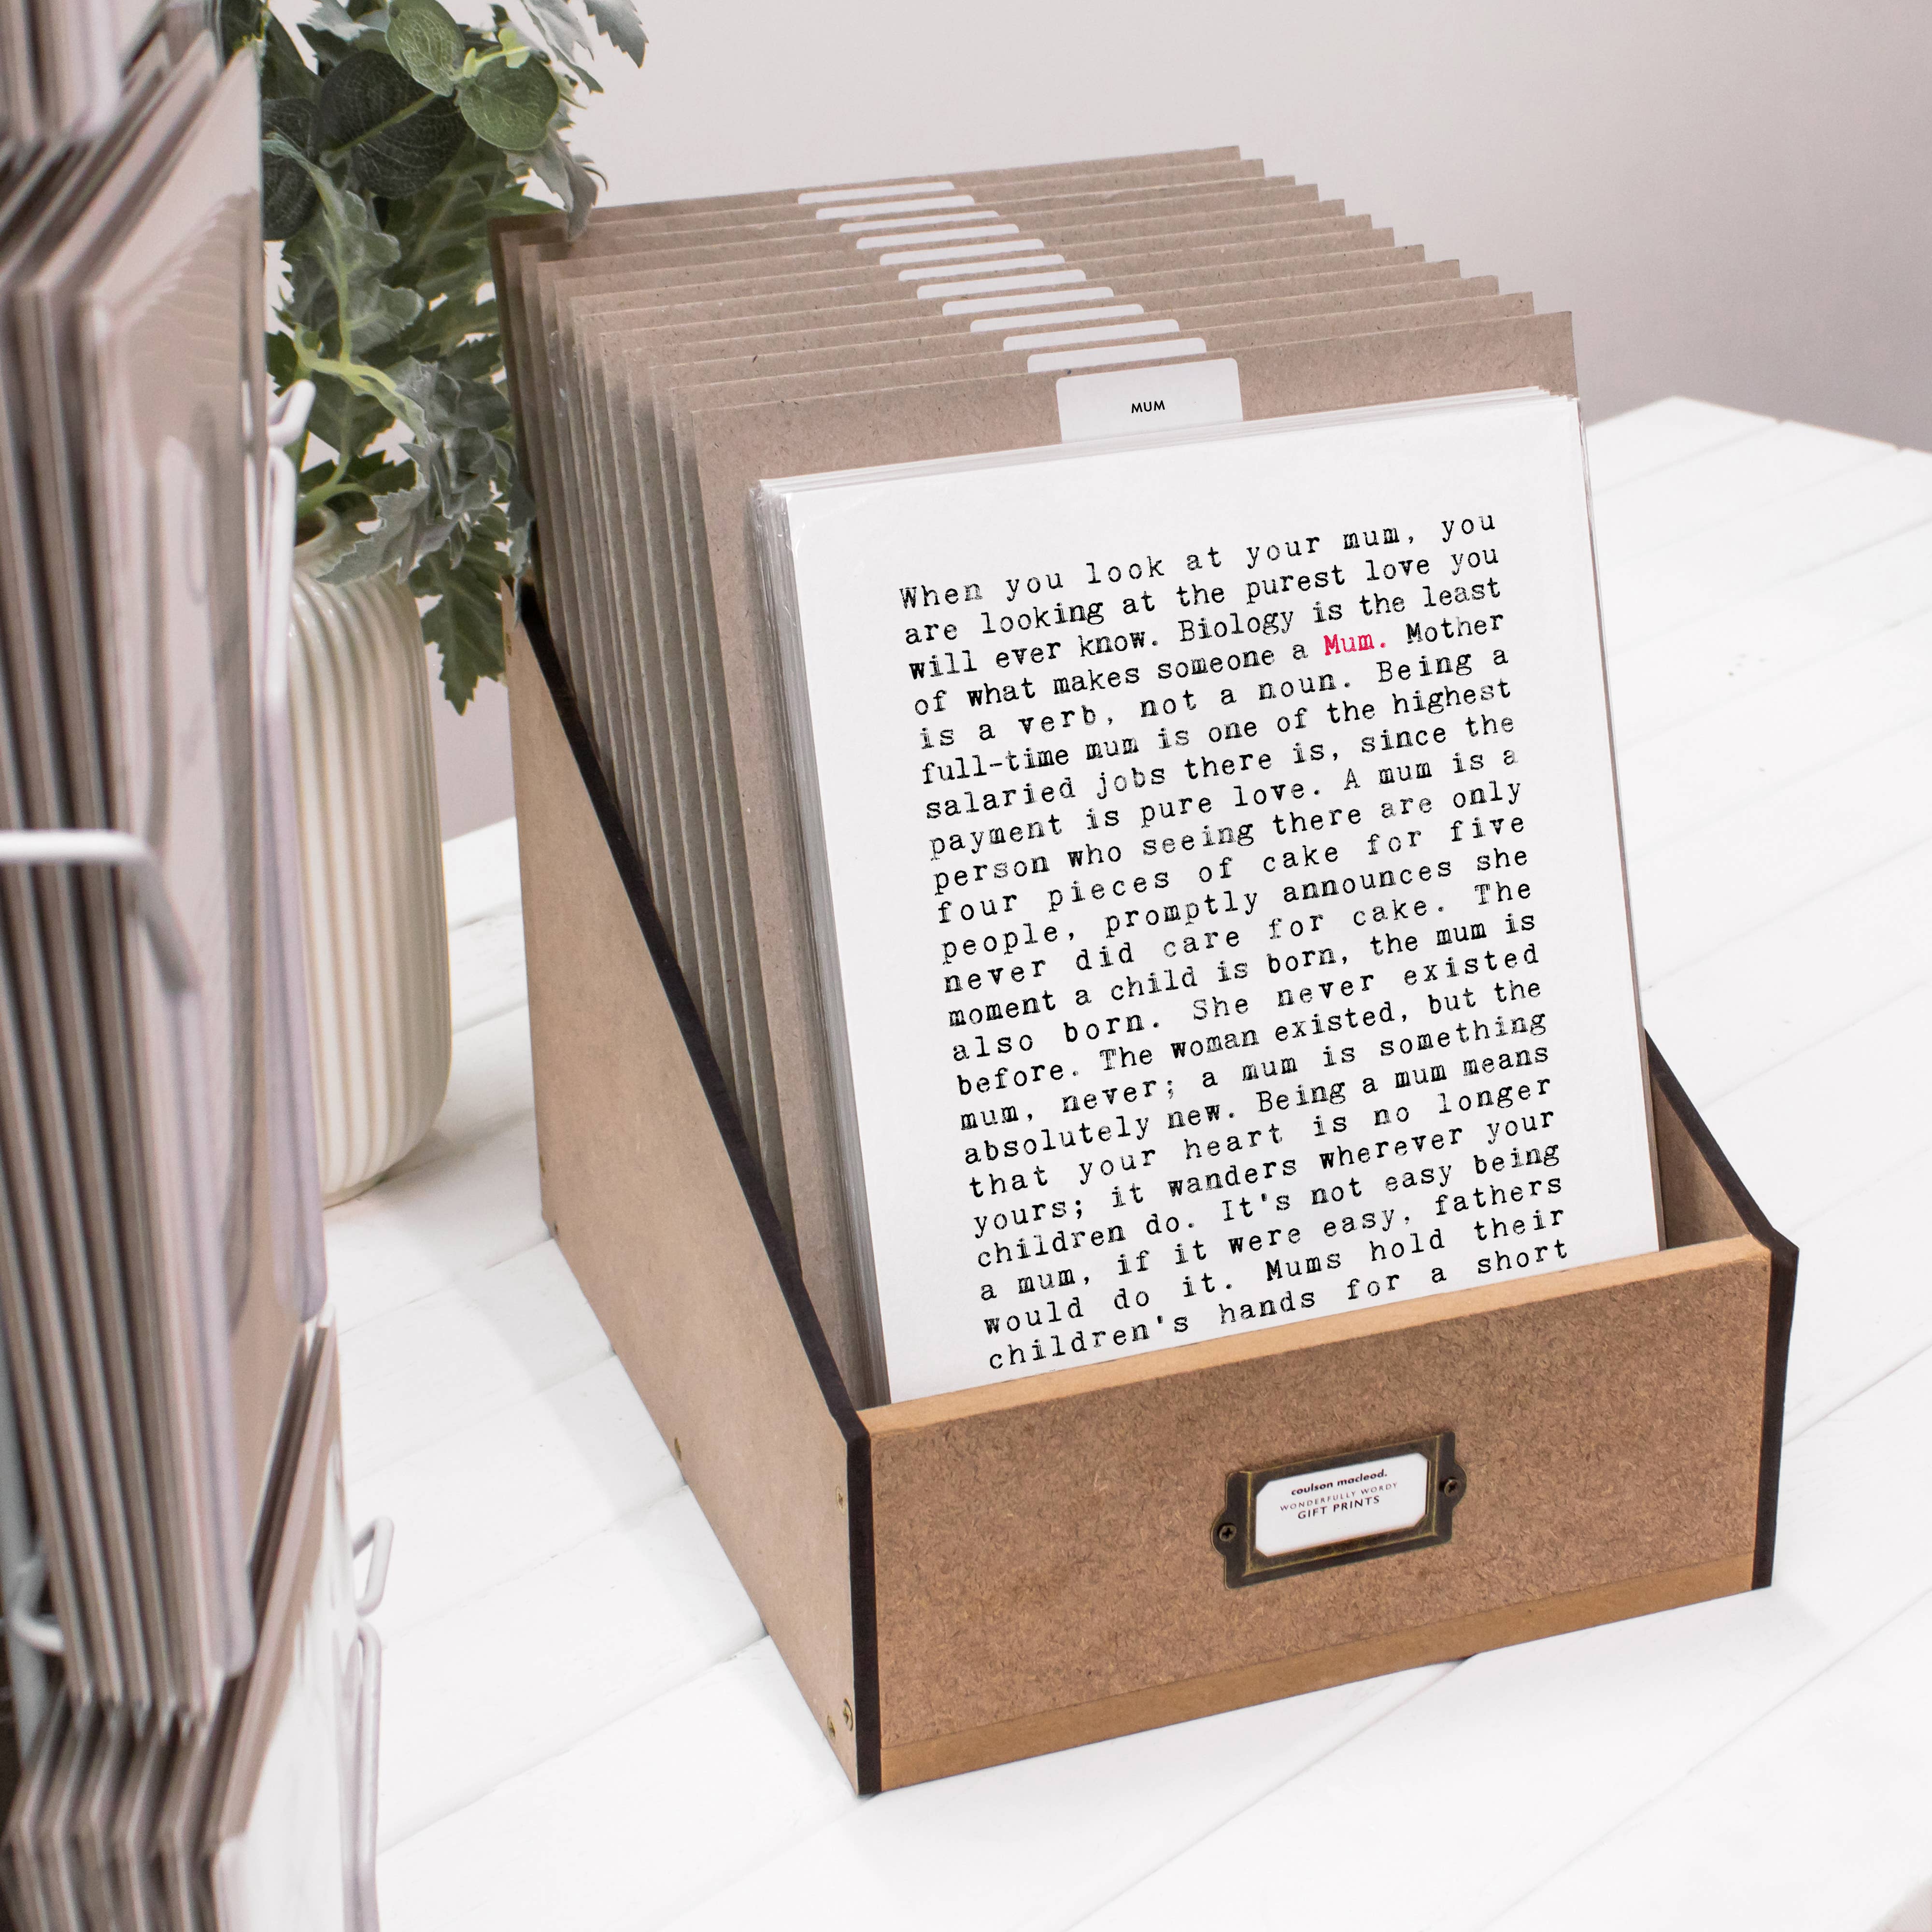 MUM
When you look at your mum, you
are looking at the purest love you
will ever know. Biology is the least
of what makes someone a Mum. Mother
is a verb, not a noun. Being a
full-time mum is one of the highest
salaried jobs there is, since the
payment is pure love. A mum is a
person who seeing there are only
four pieces of cake for five
people, promptly announces she
never did care for cake. The
moment a child is born, the mum is
also born. She never existed
before. The woman existed, but the
mum, never; a mum is something
absolutely new. Being a mum means
that your heart is no longer
yours; it wanders wherever your
children do. It's not easy being
a mum, if it were easy, fathers
would do it. Mums hold their
children's hands for a short
coulson macleod.
WONDERFULLY WORDY
GIFT PRINTS